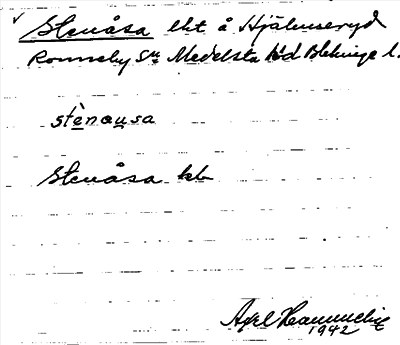 Stenåsa lht å Hjälmseryd
Ronneby Sn Medelsta hd Blekinge l.
stènåusa
Stenåsa kb
Axel
1942